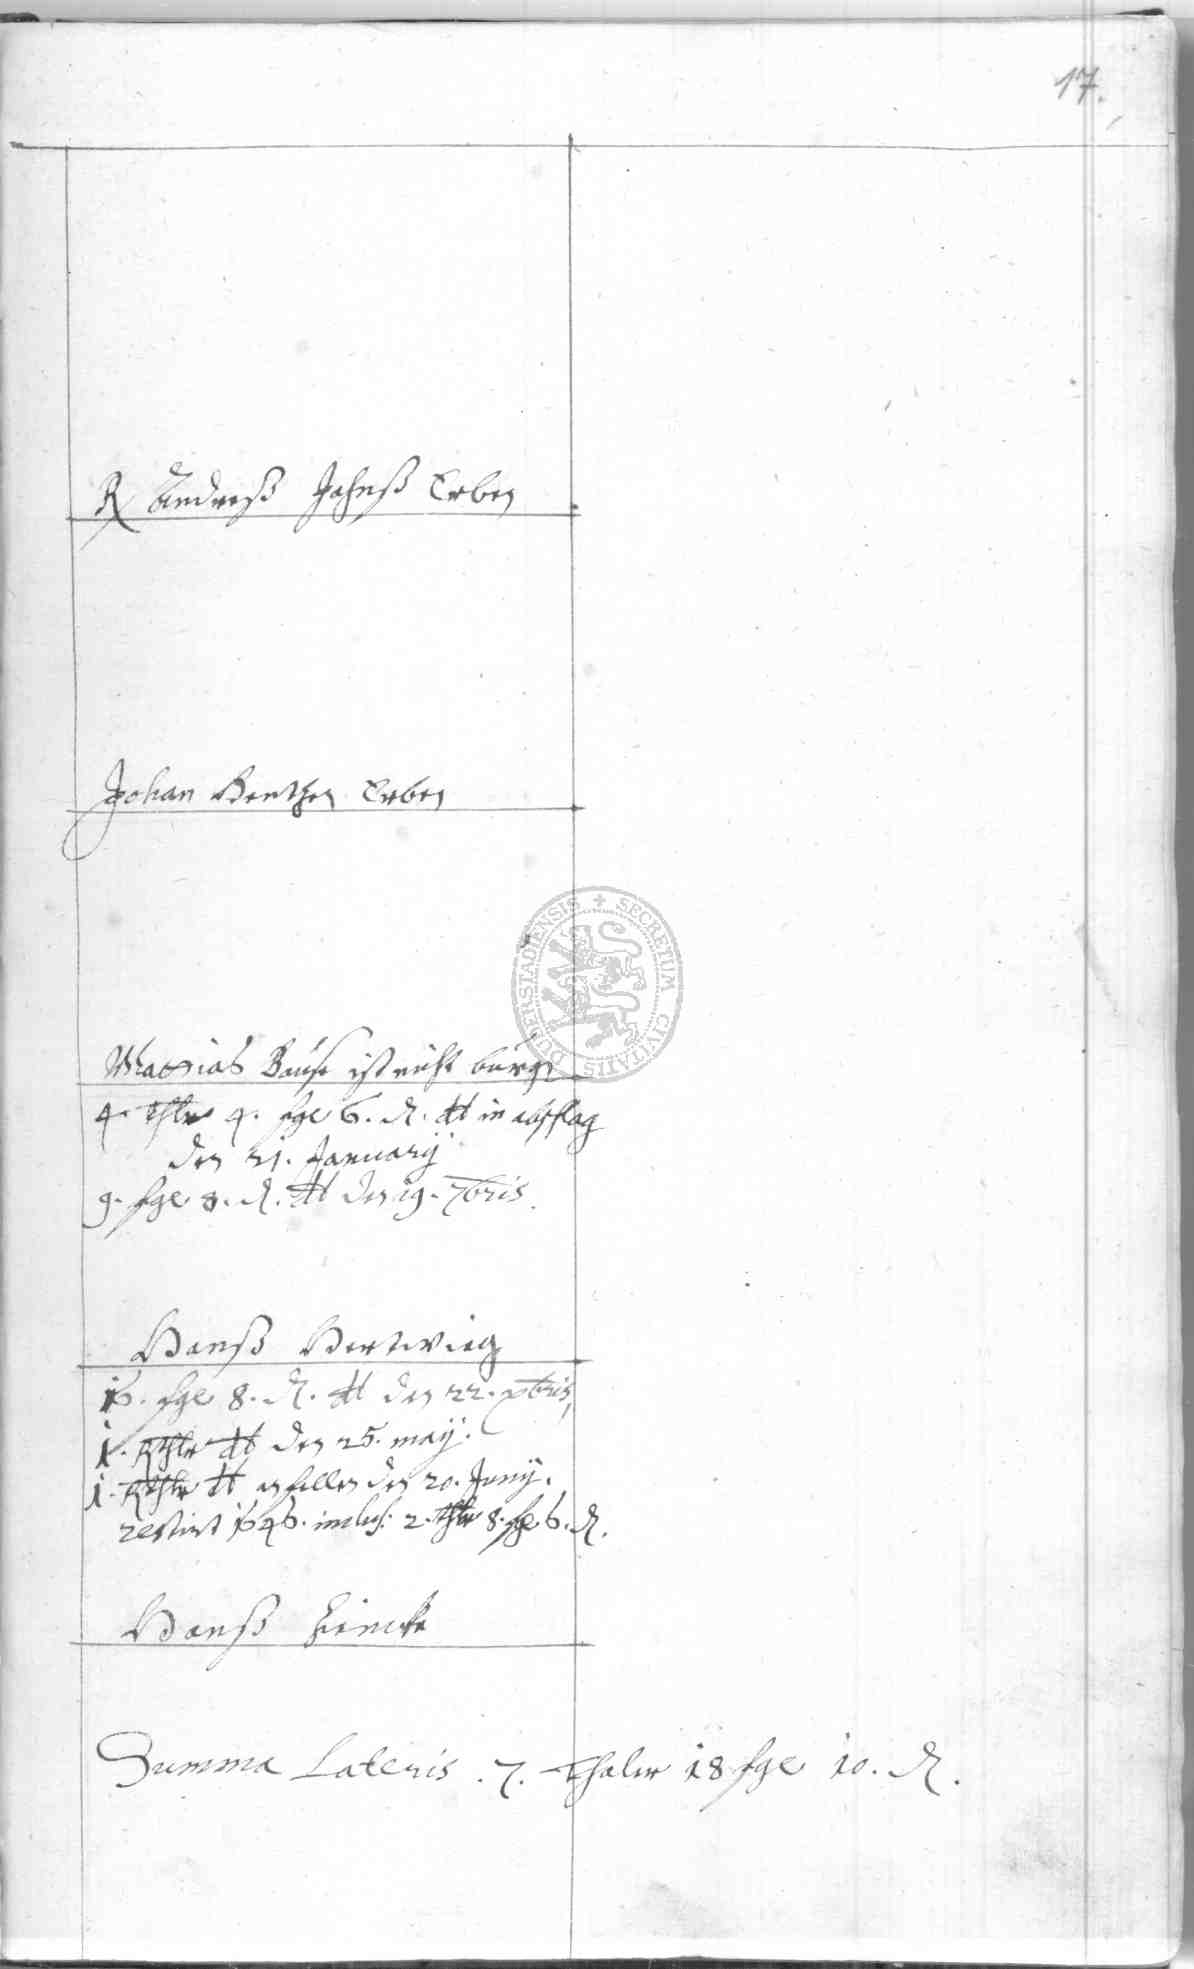 17.
R Andreß Jahnß Erben
Johan Benthen Erben
DUDERSTADIENSIS + SECRETUM CIVITATIS
Mattias Bause ist nicht burger
4. thlr 4. sge 6. ₰. dt in abschlag
den 21. January
9. sge 8. ₰. dt den 19. 7bris.
Hanß Hertwieg
16. sge 8. ₰. dt den 22. xbris,
1. Rthlr dt den 25. may.
1. Rthlr dt den 20. Juny.
restirt 1646. inclus: 2. thlr 8. sge 6. ₰.
Hanß
Summa Lateris . 7. Thaler 18 sge 10. ₰.